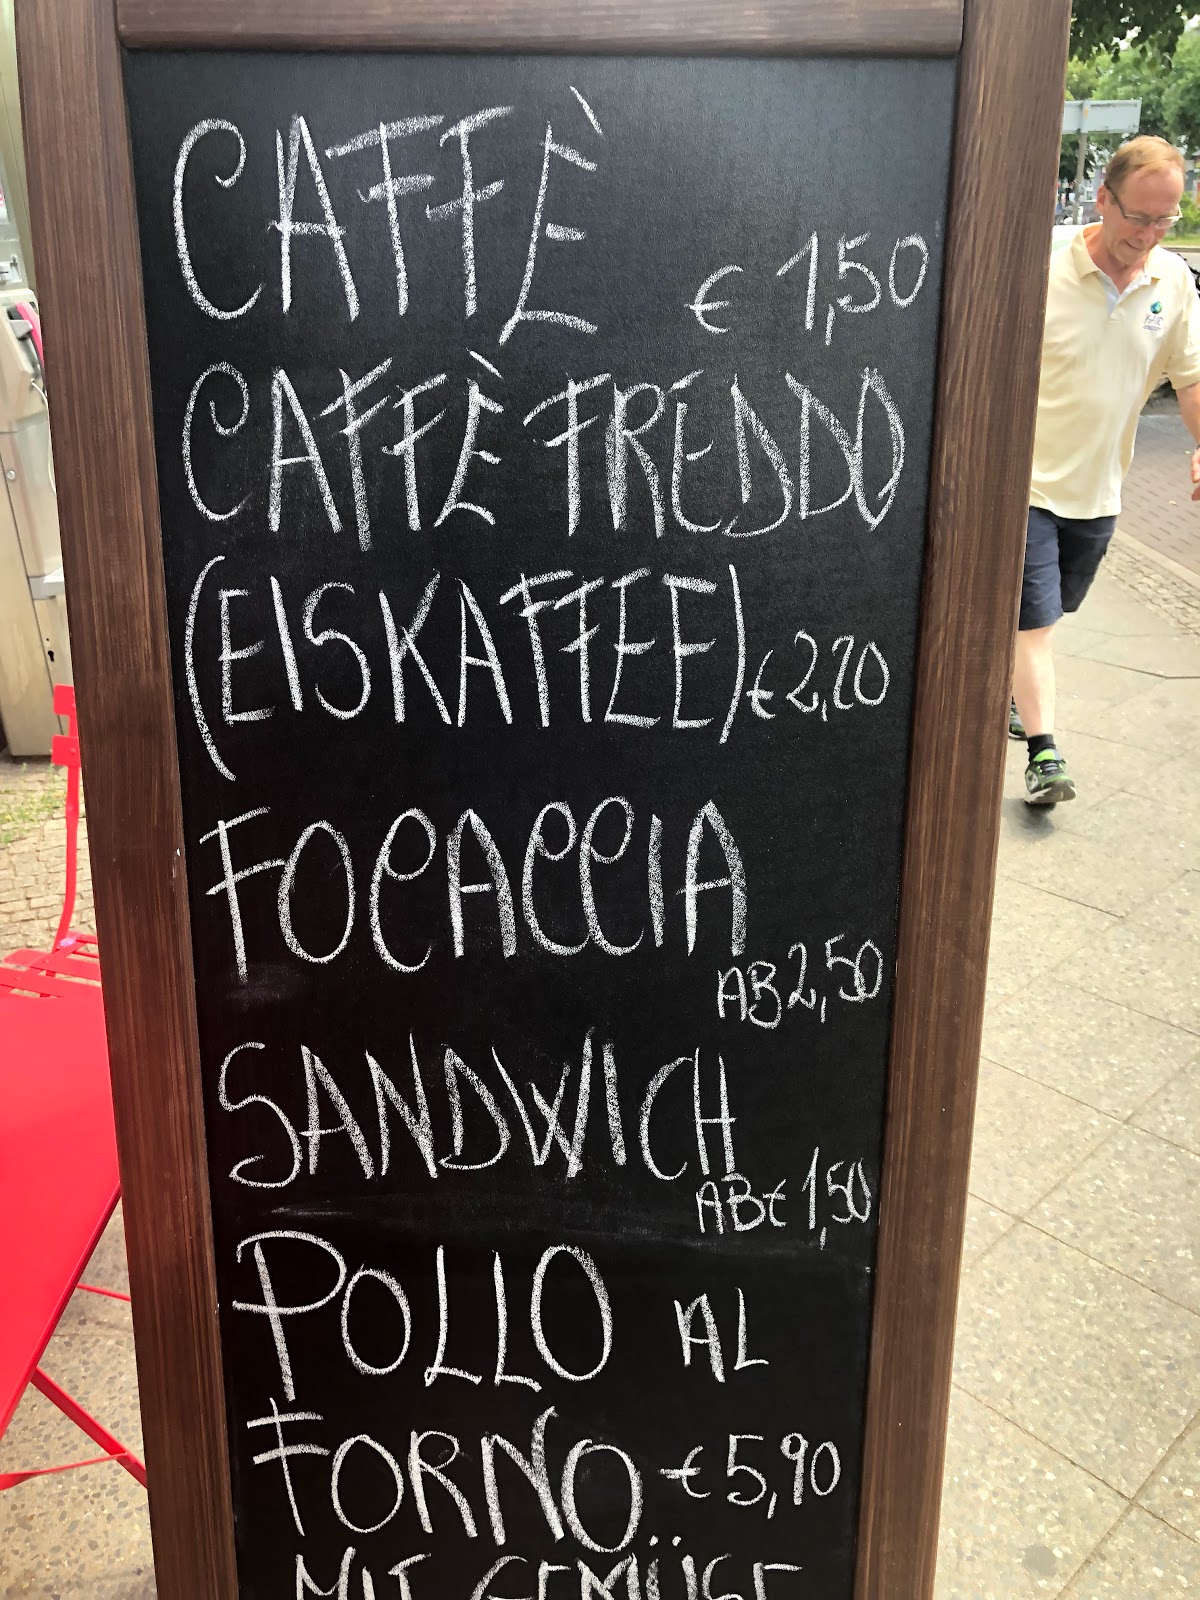 CAFFÈ
€ 1,50
CAFFÈ FREDDO
(EISKAFFEE) € 2,20
FOCACCIA
AB 2,50
SANDWICH
AB € 1,50
POLLO AL
FORNO € 5,90
MIT GEMÜSE